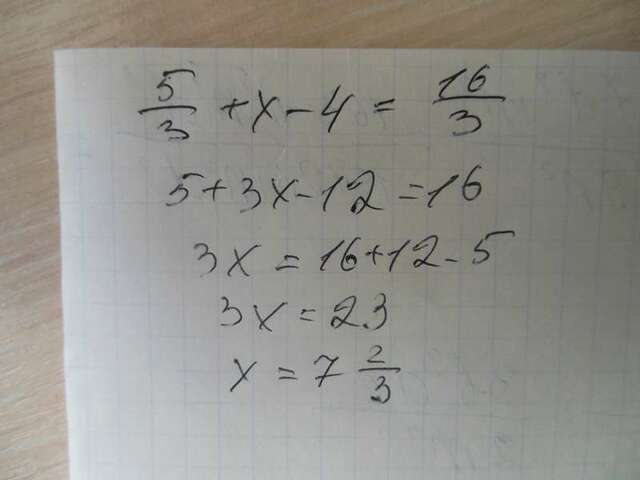 5/3 + x - 4 = 16/3
5 + 3x - 12 = 16
3x = 16 + 12 - 5
3x = 23
x = 7 2/3